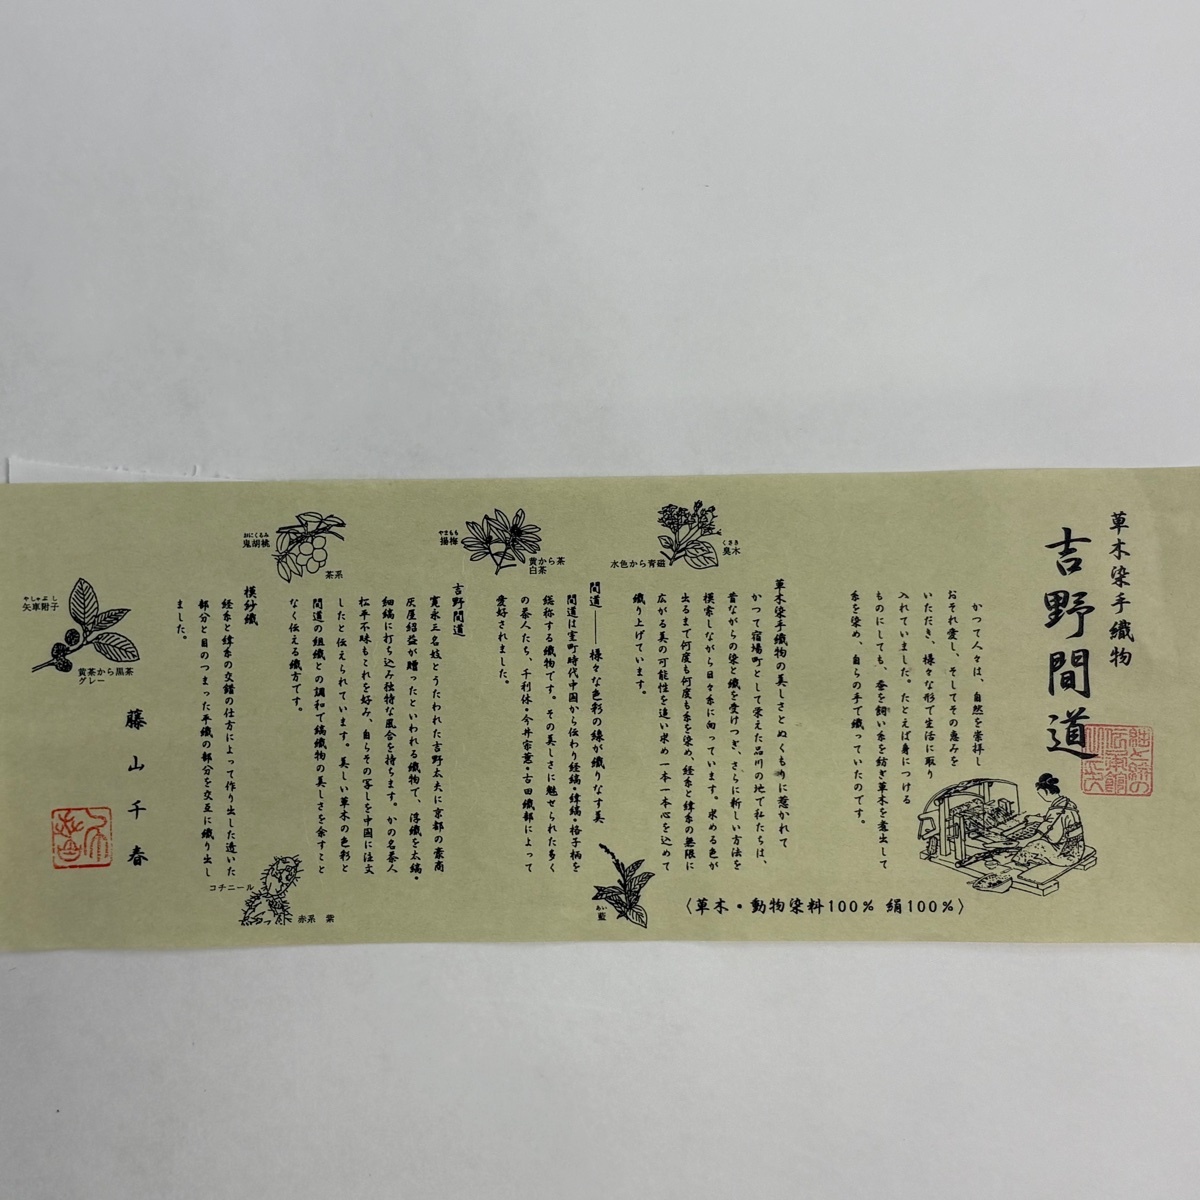 草木染手織物
吉野間道
かつて人々は、自然を崇拝し
おそれ愛し、そしてその恵みを
いただき、様々な形で生活に取り
入れていました。たとえば身につける
ものにしても、蚕を飼い糸を紡ぎ草木を煮出して
糸を染め、自らの手で織っていたのです。
〈草木・動物染料100% 絹100%〉
草木染手織物の美しさとぬくもりに惹かれて
かつて宿場町として栄えた品川の地で私たちは、
昔ながらの染と織を受けつぎ、さらに新しい方法を
模索しながら日々糸に向っています。求める色が
出るまで何度も何度も糸を染め、経糸と緯糸の無限に
広がる美の可能性を追い求め一本一本心を込めて
織り上げています。
くさき
臭木
水色から青磁
あい
藍
間道――様々な色彩の線が織りなす美
間道は室町時代中国から伝わり経縞・緯縞・格子柄を
総称する織物です。その美しさに魅せられた多く
の茶人たち、千利休・今井宗薫・古田織部によって
愛好されました。
やまもも
揚梅
黄から茶
白茶
吉野間道
寛永三名妓とうたわれた吉野太夫に京都の豪商
灰屋紹益が贈ったといわれる織物で、浮織を太縞・
細縞に打ち込み独特な風合を持ちます。かの名茶人
松平不昧もこれを好み、自らその写しを中国に注文
したと伝えられています。美しい草木の色彩と
間道の組織との調和で縞織物の美しさを余すとこ
なく伝える織方です。
おにくるみ
鬼胡桃
茶系
模紗織
経糸と緯糸の交錯の仕方によって作り出した透いた
部分と目のつまった平織の部分を交互に織り出し
ました。
コチニール
赤系 紫
やしゃぶし
矢車附子
黄茶から黒茶
グレー
藤山千春